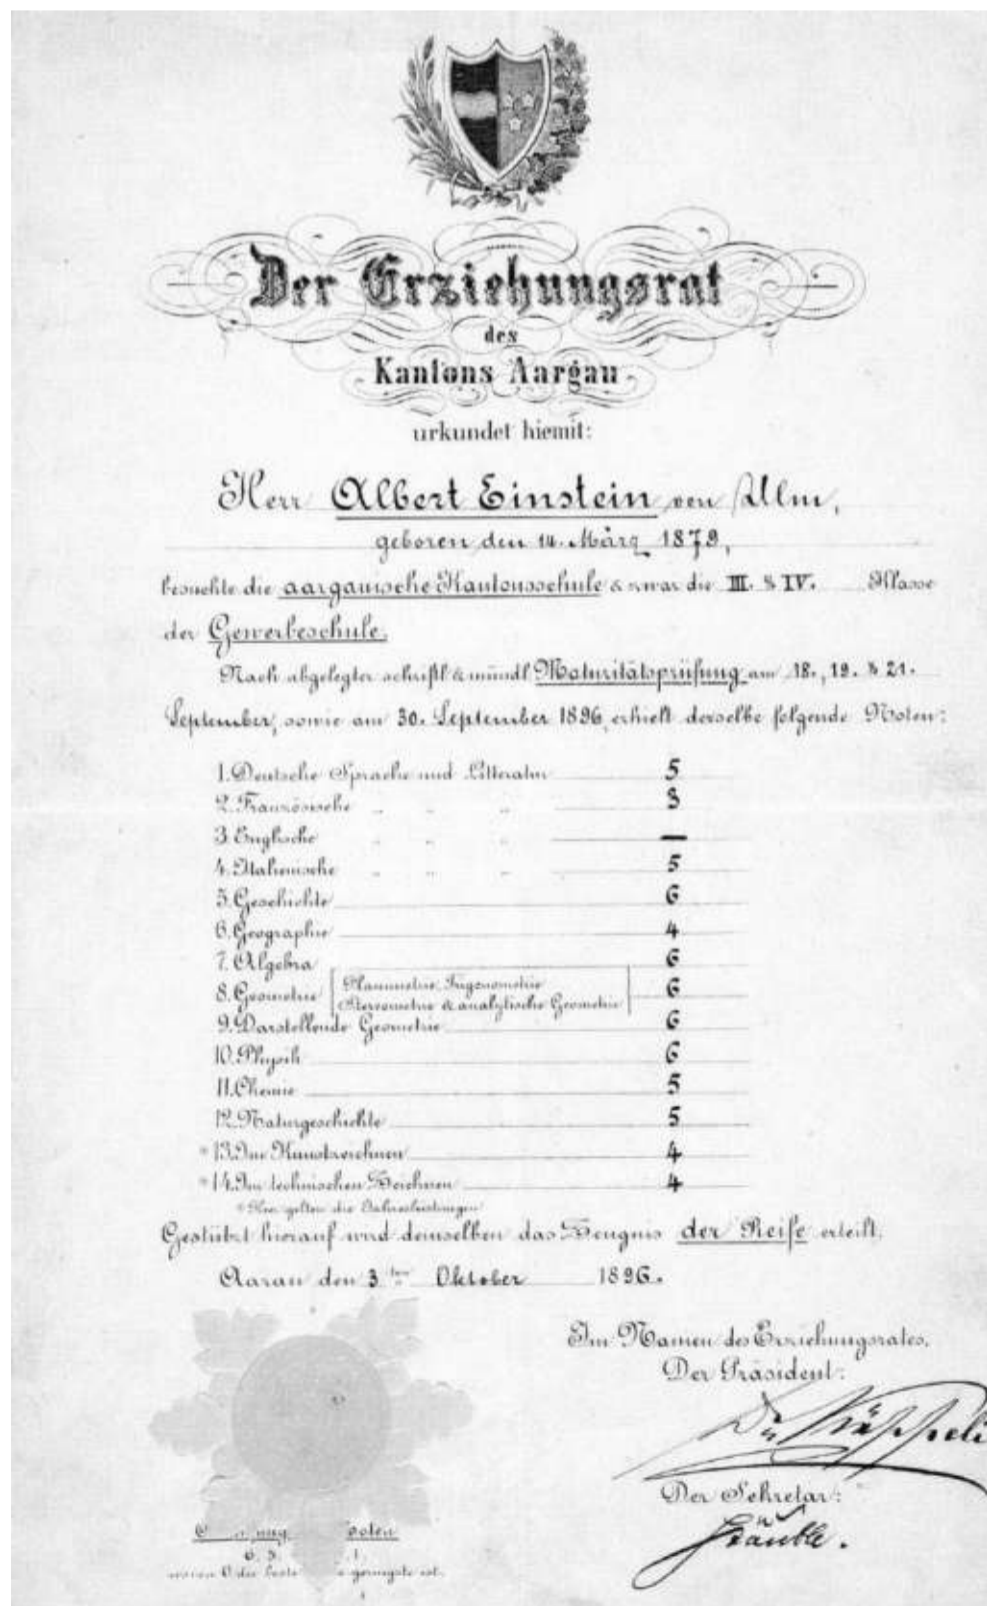 Der Erziehungsrat
des
Kantons Aargau
urkundet hiemit:
Herr Albert Einstein von Ulm,
geboren den 14. März 1879,
besuchte die aargauische Kantonsschule & zwar die III. & IV. Klasse
der Gewerbeschule.
Nach abgelegter schriftl. & mündl. Maturitätsprüfung am 18., 19. & 21.
September, sowie am 30. September 1896, erhielt derselbe folgende Noten:
1. Deutsche Sprache und Litteratur 5
2. Französische " " " 3
3. Englische " " " —
4. Italienische " " " 5
5. Geschichte 6
6. Geographie 4
7. Algebra 6
8. Geometrie [Planimetrie, Trigonometrie
Stereometrie & analytische Geometrie] 6
9. Darstellende Geometrie 6
10. Physik 6
11. Chemie 5
12. Naturgeschichte 5
* 13. Im Kunstzeichnen 4
* 14. Im technischen Zeichnen 4
* Hier gelten die Jahresleistungen
Gestützt hierauf wird demselben das Zeugnis der Reife erteilt.
Aarau den 3ten Oktober 1896.
Im Namen des Erziehungsrates,
Der Präsident:
Dr. Käppeli
Der Sekretär:
Stäuble.